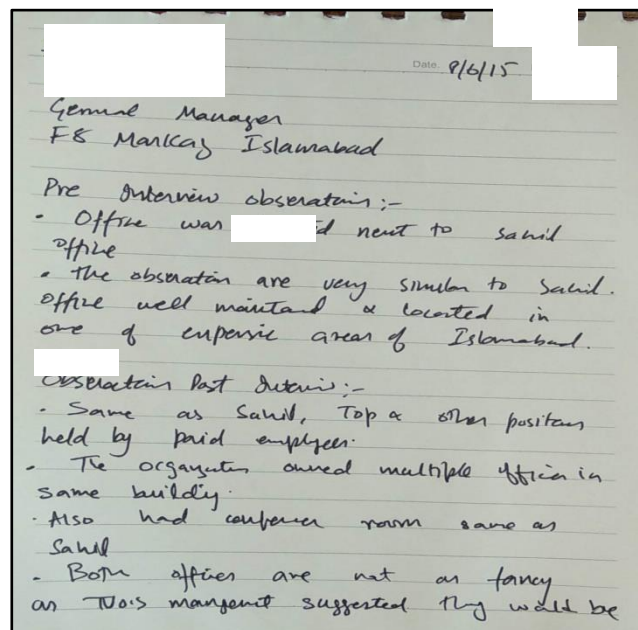 Date. 8/6/15
General Manager
F8 Markaz Islamabad
Pre Interview obseratains :-
• Office was next to Sahil
office
• The obseration are very similar to Sahil.
office well maintand & located in
one of expensic areas of Islamabad.
Obseractain Post Interview :-
• Same as Sahil, Top & other positons
held by paid employees.
• The organization owned multiple offices in
same building.
• Also had conference room same as
Sahil
• Both offices are not as fancy
as management suggested they would be